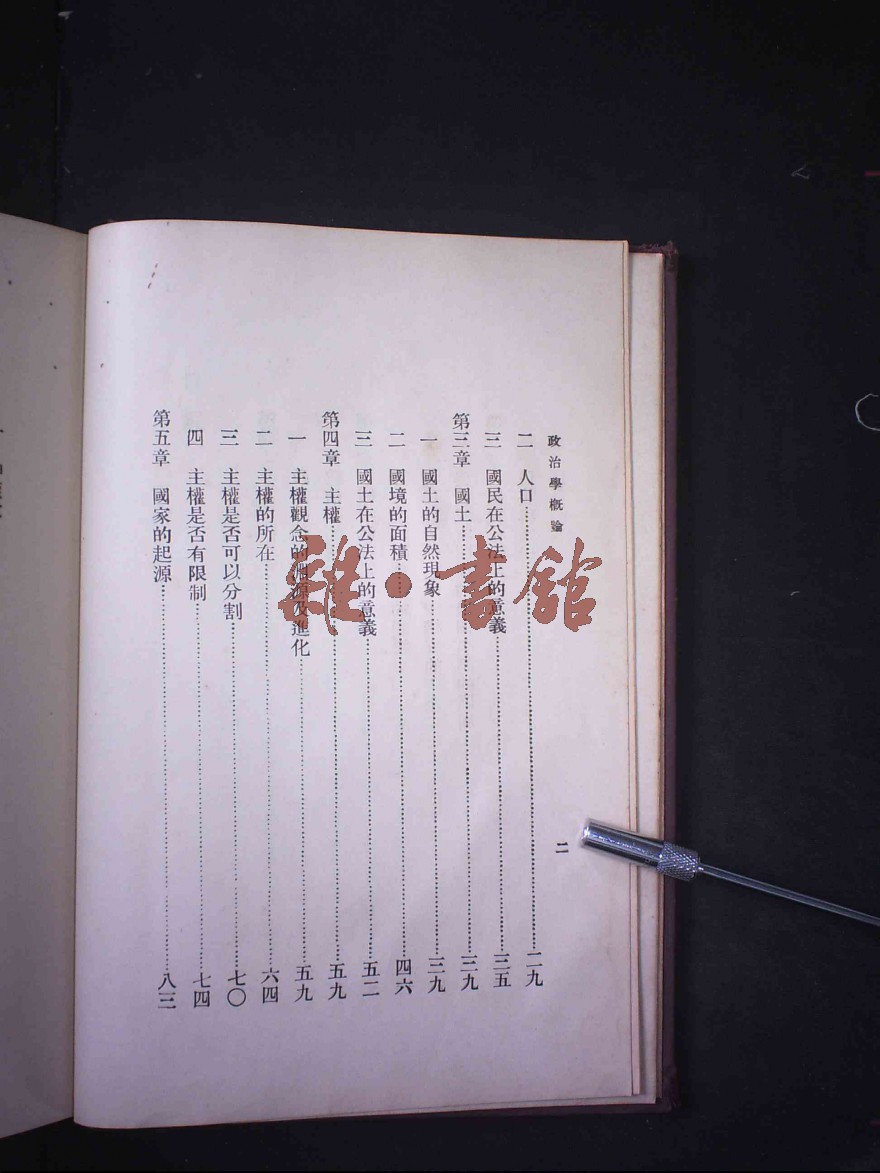 政治學概論
二
二 人口……二九
三 國民在公法上的意義……三五
第三章 國土……三九
一 國土的自然現象……三九
二 國境的面積……四六
三 國土在公法上的意義……五二
第四章 主權……五九
一 主權觀念的淵源及進化……五九
二 主權的所在……六四
三 主權是否可以分割……七〇
四 主權是否有限制……七四
第五章 國家的起源……八三
雜·書館